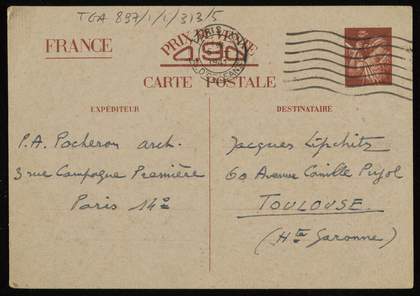 TGA 897/1/1/313/5
FRANCE
PRIX DE VENTE
90c
CARTE POSTALE
EXPÉDITEUR
P.A. Pacheron arch.
3 rue Campagne Première
Paris 14e
DESTINATAIRE
Jacques Lipchitz
60 Avenue Camille Pujol
TOULOUSE
(Hte Garonne)